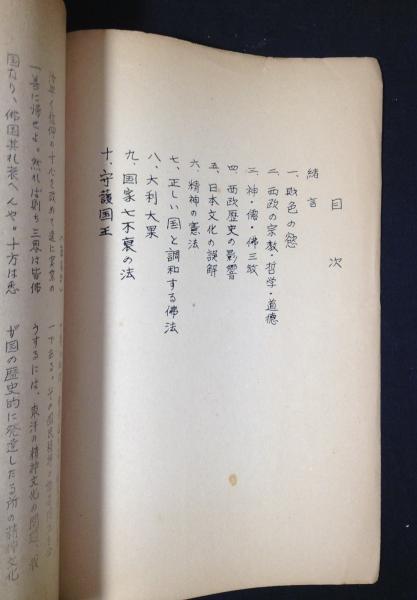 目次
緒言
一、財色の慾
二、西政の宗教・哲学・道徳
三、神・儒・佛三教
四、西政歴史の影響
五、日本文化の誤解
六、精神の憲法
七、正しい国と調和する佛法
八、大利大果
九、国家七不衰の法
十、守護国王
一善に帰せよ。然れば則ち三界は皆佛
国なり、佛国其れ衰へんや。十方は悉
うするには、東洋の精神文化の問題、我
が国の歴史的に発達したる所の精神文化